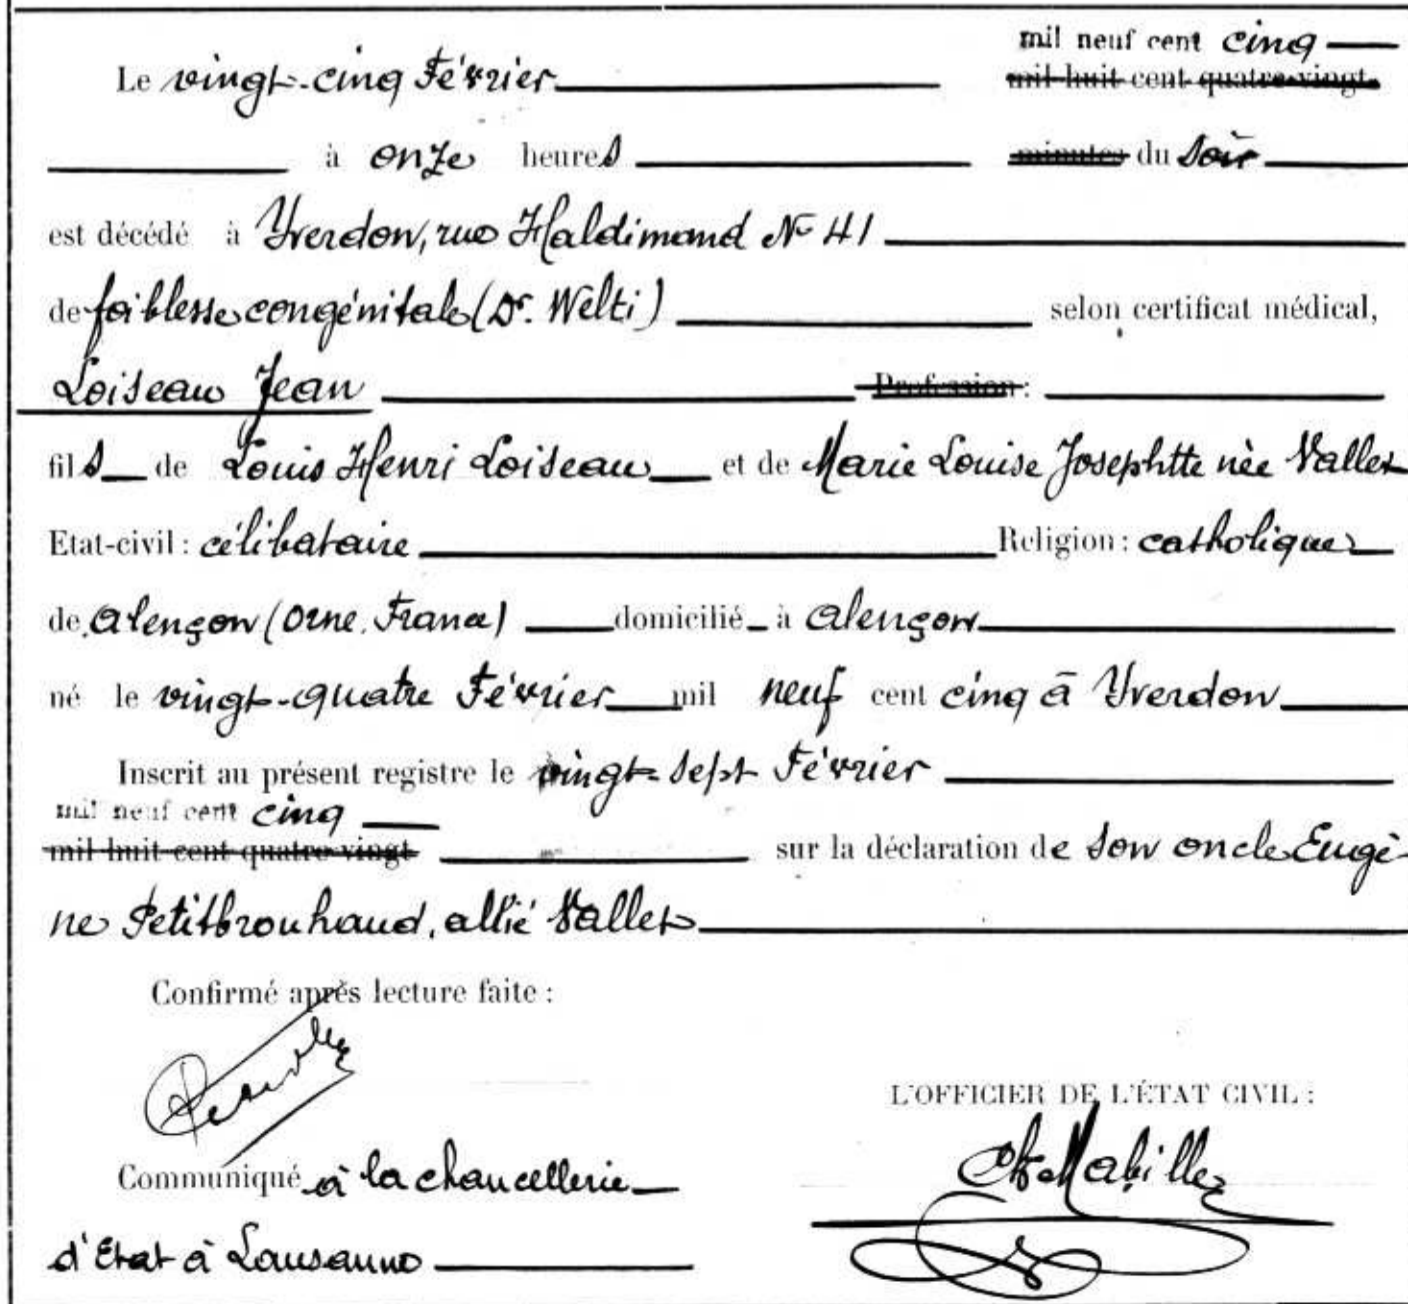 mil neuf cent cinq
Le vingt-cinq Février mil huit cent quatre-vingt
à onze heures minutes du soir
est décédé à Yverdon, rue Haldimand No 41
de faiblesse congénitale (Dr. Welti) selon certificat médical,
Loiseau Jean Profession:
fils de Louis Henri Loiseau et de Marie Louise Josephtte née Vallet
Etat-civil: célibataire Religion: catholique
de Alençon (Orne. France) domicilié à Alençon
né le vingt-quatre Février mil neuf cent cinq à Yverdon
Inscrit au présent registre le vingt-sept Février
mil neuf cent cinq
mil huit cent quatre-vingt sur la déclaration de son oncle Eugè-
ne Petitbrouhaud, allié Vallet
Confirmé après lecture faite:
L'OFFICIER DE L'ÉTAT CIVIL:
Mabille
Communiqué à la chancellerie
d'Etat à Lausanne